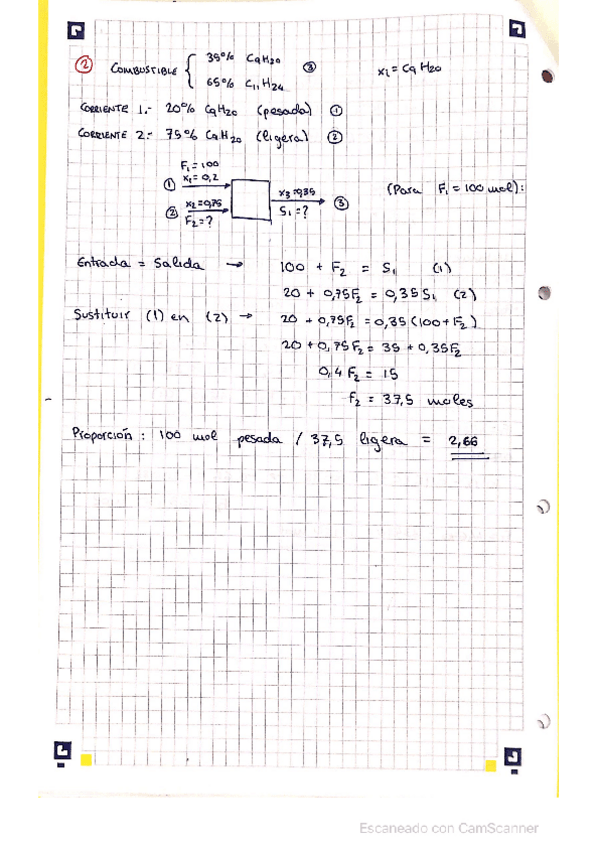 ② COMBUSTIBLE { 35% C9H20 ③ xi = C9H20
65% C11H24
CORRIENTE 1.- 20% C9H20 (pesada) ①
CORRIENTE 2.- 75% C9H20 (ligera) ②
F1 = 100
① x1 = 0,2
x3 = 0,35 ③
S1 = ?
(Para F1 = 100 mol):
② x2 = 0,75
F2 = ?
Entrada = Salida → 100 + F2 = S1 (1)
20 + 0,75F2 = 0,35 S1 (2)
Sustituir (1) en (2) → 20 + 0,75F2 = 0,35 (100 + F2)
20 + 0,75F2 = 35 + 0,35F2
0,4 F2 = 15
F2 = 37,5 moles
Proporción: 100 mol pesada / 37,5 ligera = 2,66
Escaneado con CamScanner